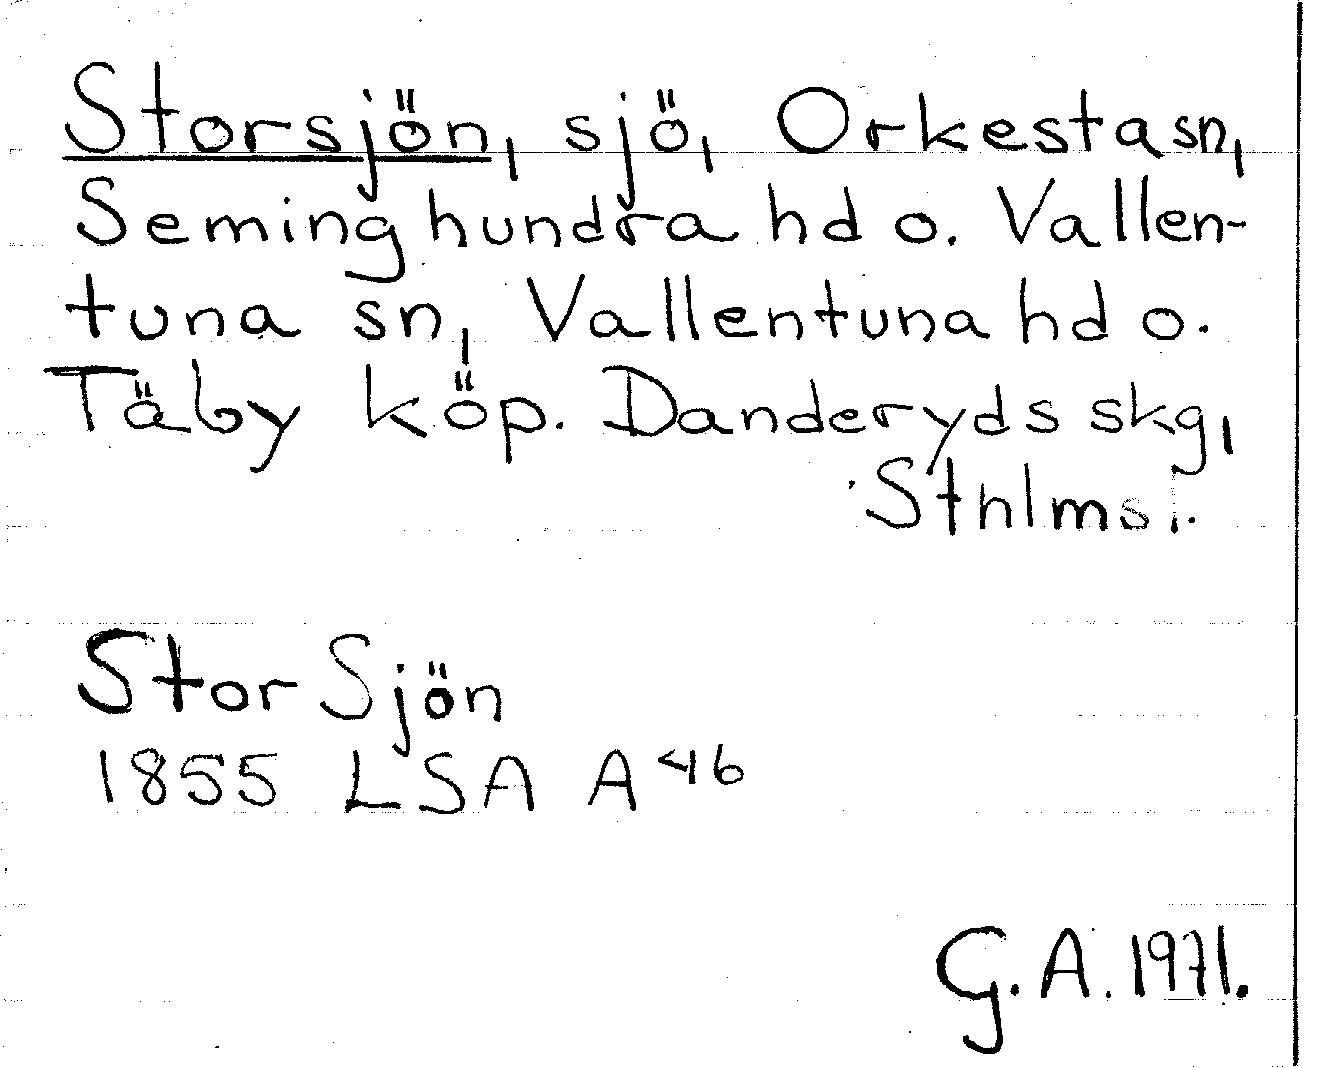 Storsjön, sjö, Orkesta sn,
Seminghundra hd o. Vallen-
tuna sn, Vallentuna hd o.
Täby köp. Danderyds skg,
Sthlms l.
Stor Sjön
1855 LSA A 46
G. A. 1971.